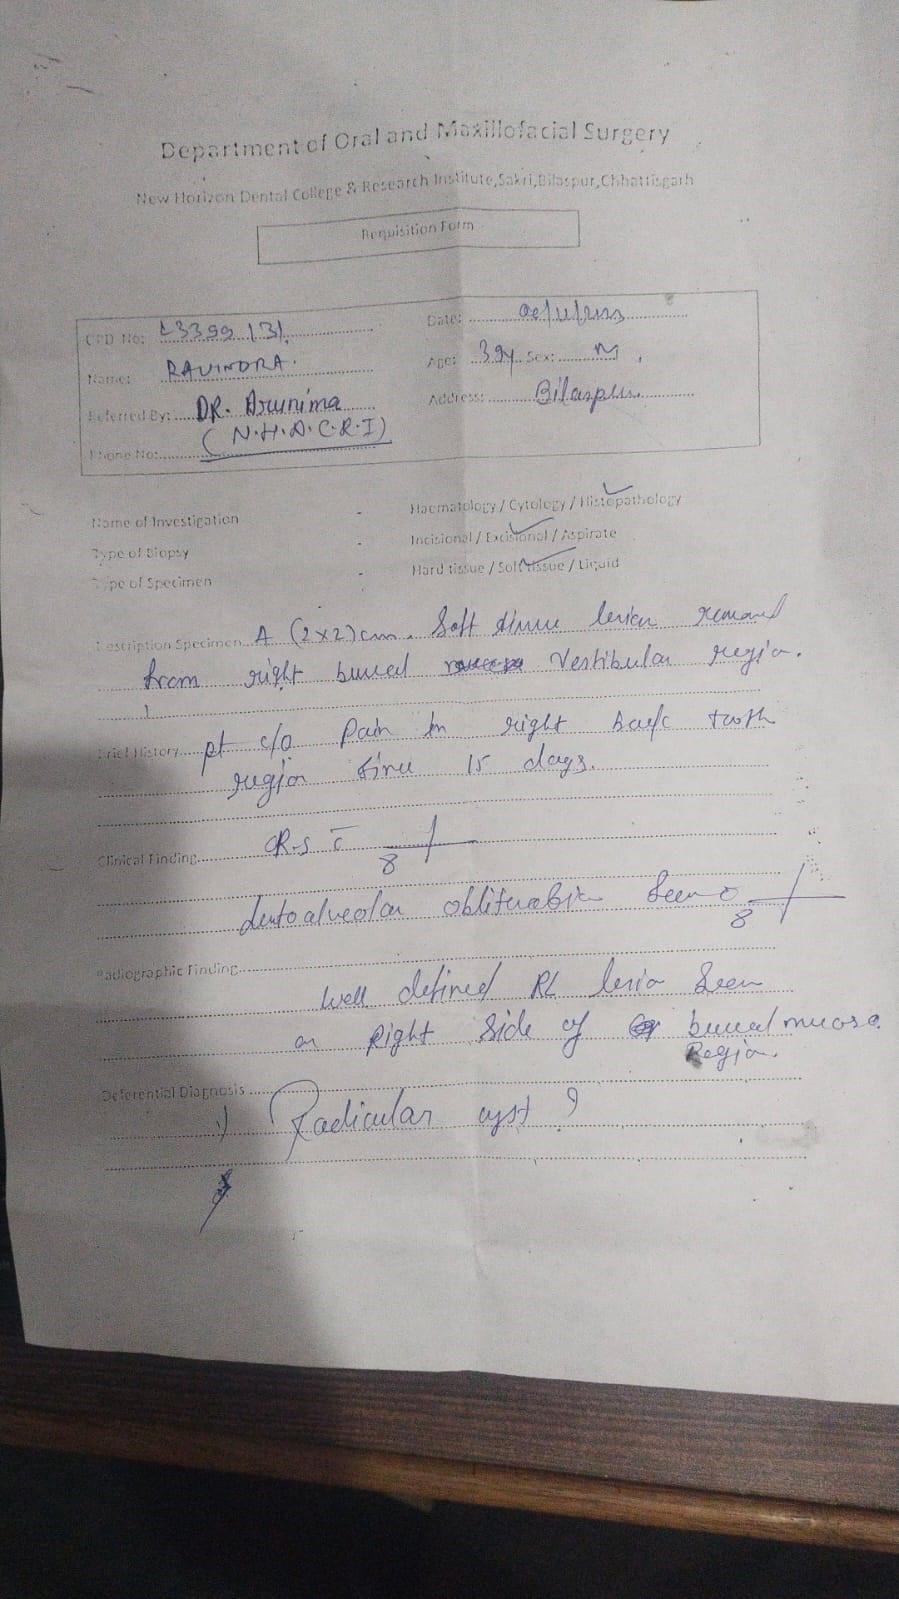 Department of Oral and Maxillofacial Surgery
New Horizon Dental College & Research Institute,Sakri,Bilaspur,Chhattisgarh
Requisition Form
OPD No:
Date:
Name: RAVINDRA.
Age: 39y Sex: M
Referred By: DR. Arunima
Address: Bilaspur
(N.H.D.C.R.I)
Phone No:
Name of Investigation - Haematology / Cytology / Histopathology
Type of Biopsy - Incisional / Excisional / Aspirate
Type of Specimen - Hard tissue / Soft tissue / Liquid
Description Specimen A (2x2)cm. Soft tissue lesion removed
from right buccal Vestibular region.
Brief History pt c/o Pain in right back tooth
region since 15 days.
Clinical Finding 8
obliteration seen 8
Radiographic Finding
Well defined RL lesion seen
on Right Side of buccal mucosa
Region.
Deferential Diagnosis
1) Radicular cyst ?